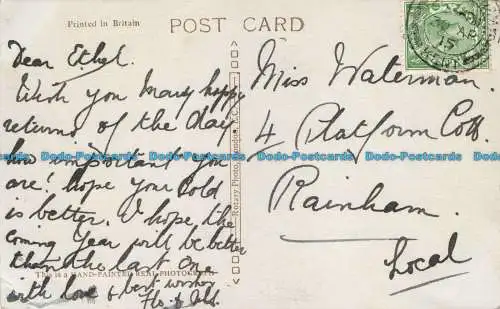 Printed in Britain
POST CARD
Dear Ethel.
Wish you many happy
returns of the day
how important you
are! hope your cold
is better. I hope the
coming Year will be better
than the last on
with love & best wishes
Flo. &
This is a HAND-PAINTED REAL PHOTOGRAPH
Rotary Photo, London, E.C.
Miss Waterman.
4 Platform Cott
Rainham.
Local
KENT
Dodo-Postcards Dodo-Postcards Dodo-Postcards Dodo-Postcards Dodo-Postcards